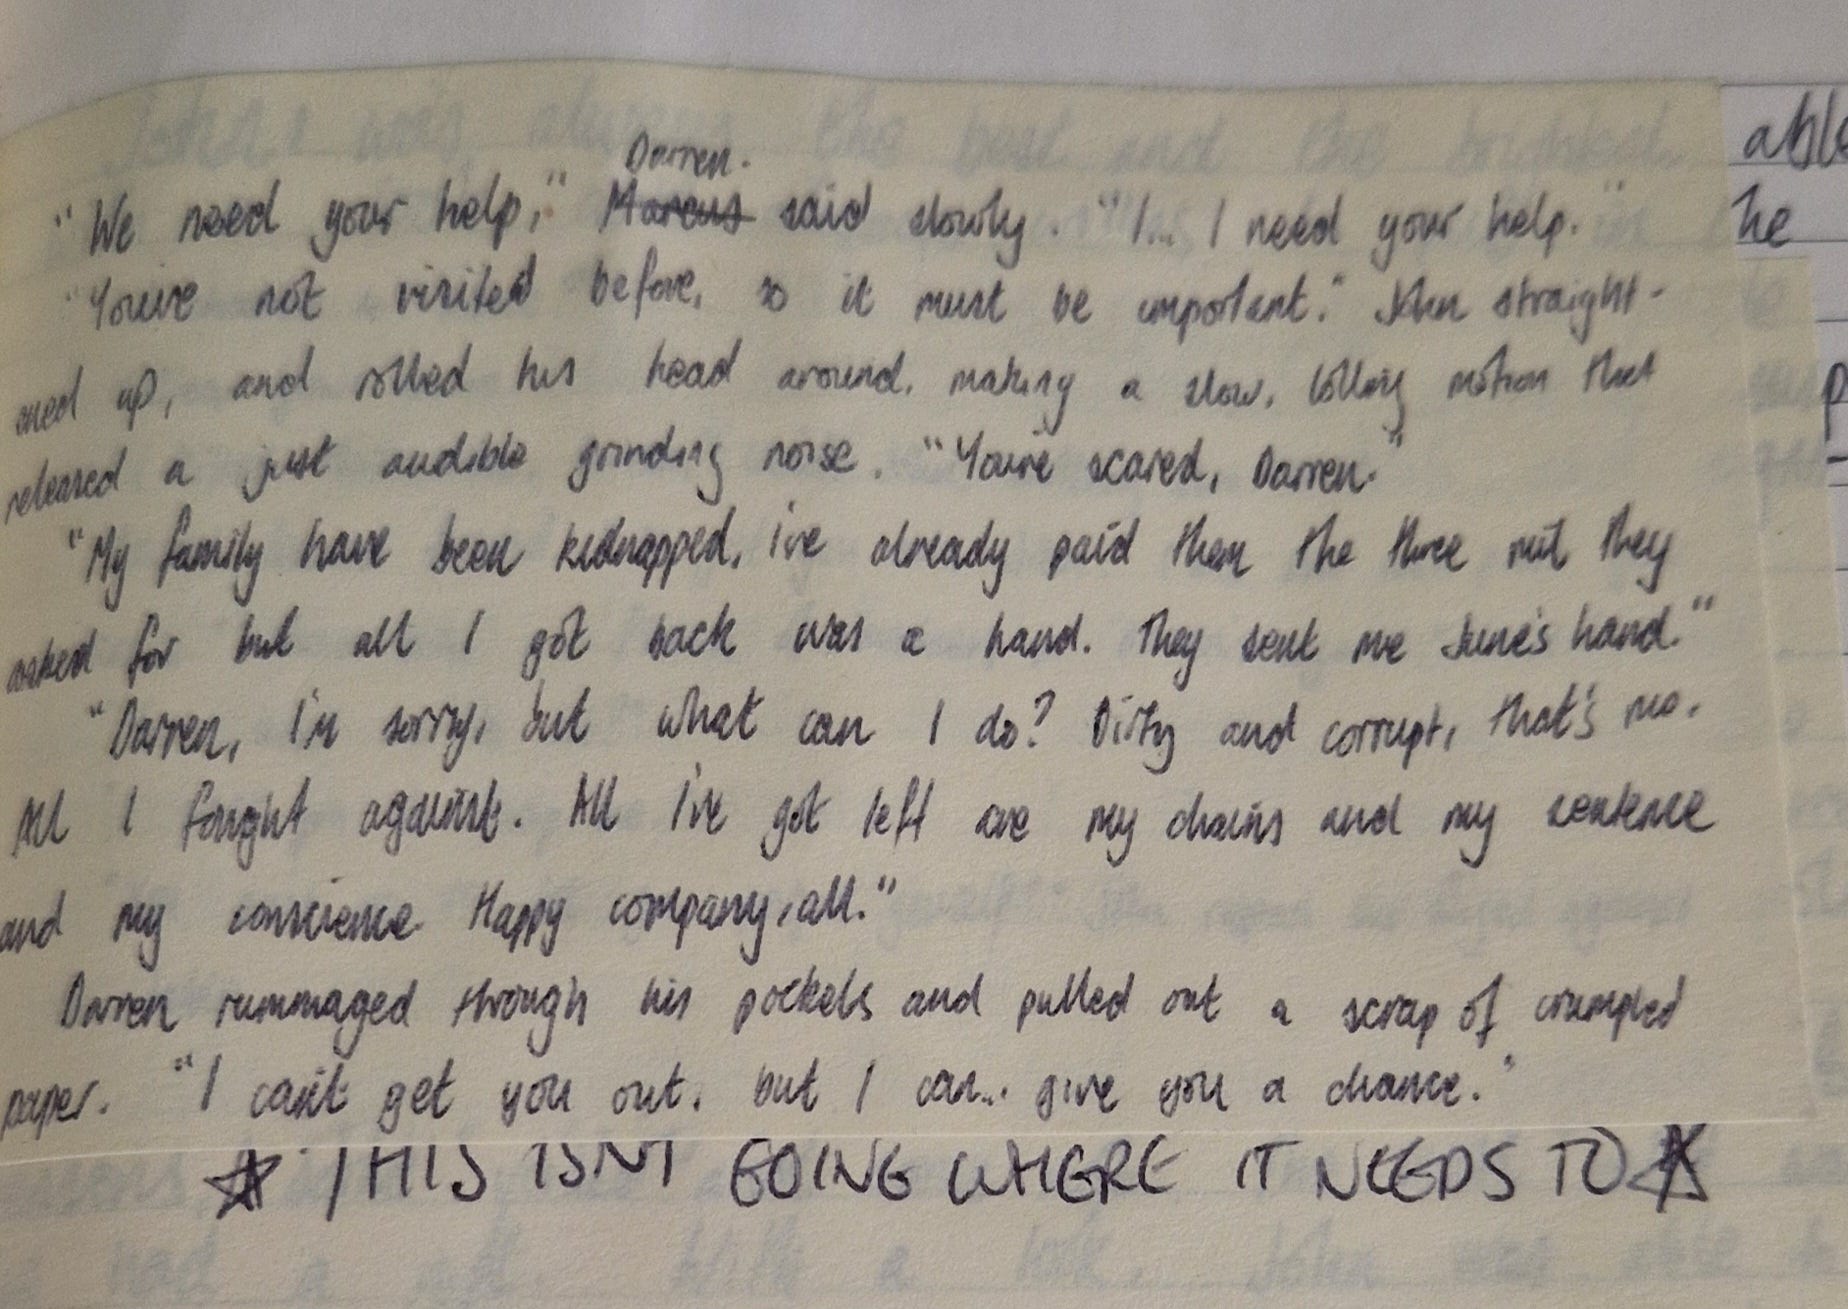 Darren.
"We need your help," Marcus said slowly. "I... I need your help."
"You've not visited before, so it must be important." John straight-
ened up, and rolled his head around, making a slow, lolling motion that
released a just audible grinding noise. "You're scared, Darren."
"My family have been kidnapped, i've already paid them the three mil they
asked for but all I got back was a hand. They sent me June's hand."
"Darren, I'm sorry, but what can I do? Dirty and corrupt, that's me.
All I fought against. All I've got left are my chains and my sentence
and my conscience. Happy company, all."
Darren rummaged through his pockets and pulled out a scrap of crumpled
paper. "I can't get you out, but I can... give you a chance."
THIS ISNT GOING WHERE IT NEEDS TO
able
he